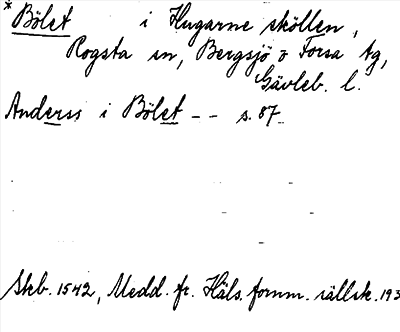 * Bölet i Hugarne skölten,
Rogsta sn, Bergsjö o Forsa tg,
Gävleb. l.
Anderss i Bölet - - s. 87
Skb. 1542, Medd. fr. Häls. fornm. sällsk. 193